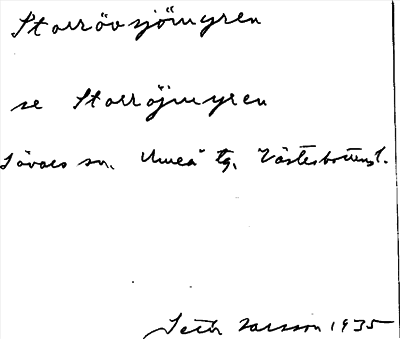 Storrövsjömyren
se Storröjmyren
Sävars sn. Umeå tg. Västerbottens l.
Seth Larsson 1935